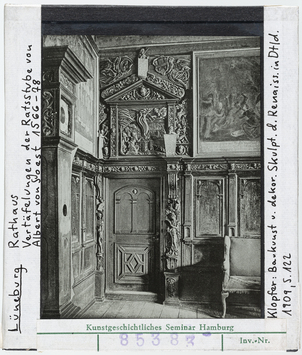 Lüneburg Rathaus
Vertäfelungen der Ratsstube von
Albert von Soest 1566-78
Klopfer: Baukunst u. dekor. Skulpt. d. Renaiss. in Dtld.
1909, S. 122
Kunstgeschichtliches Seminar Hamburg
Inv.-Nr.